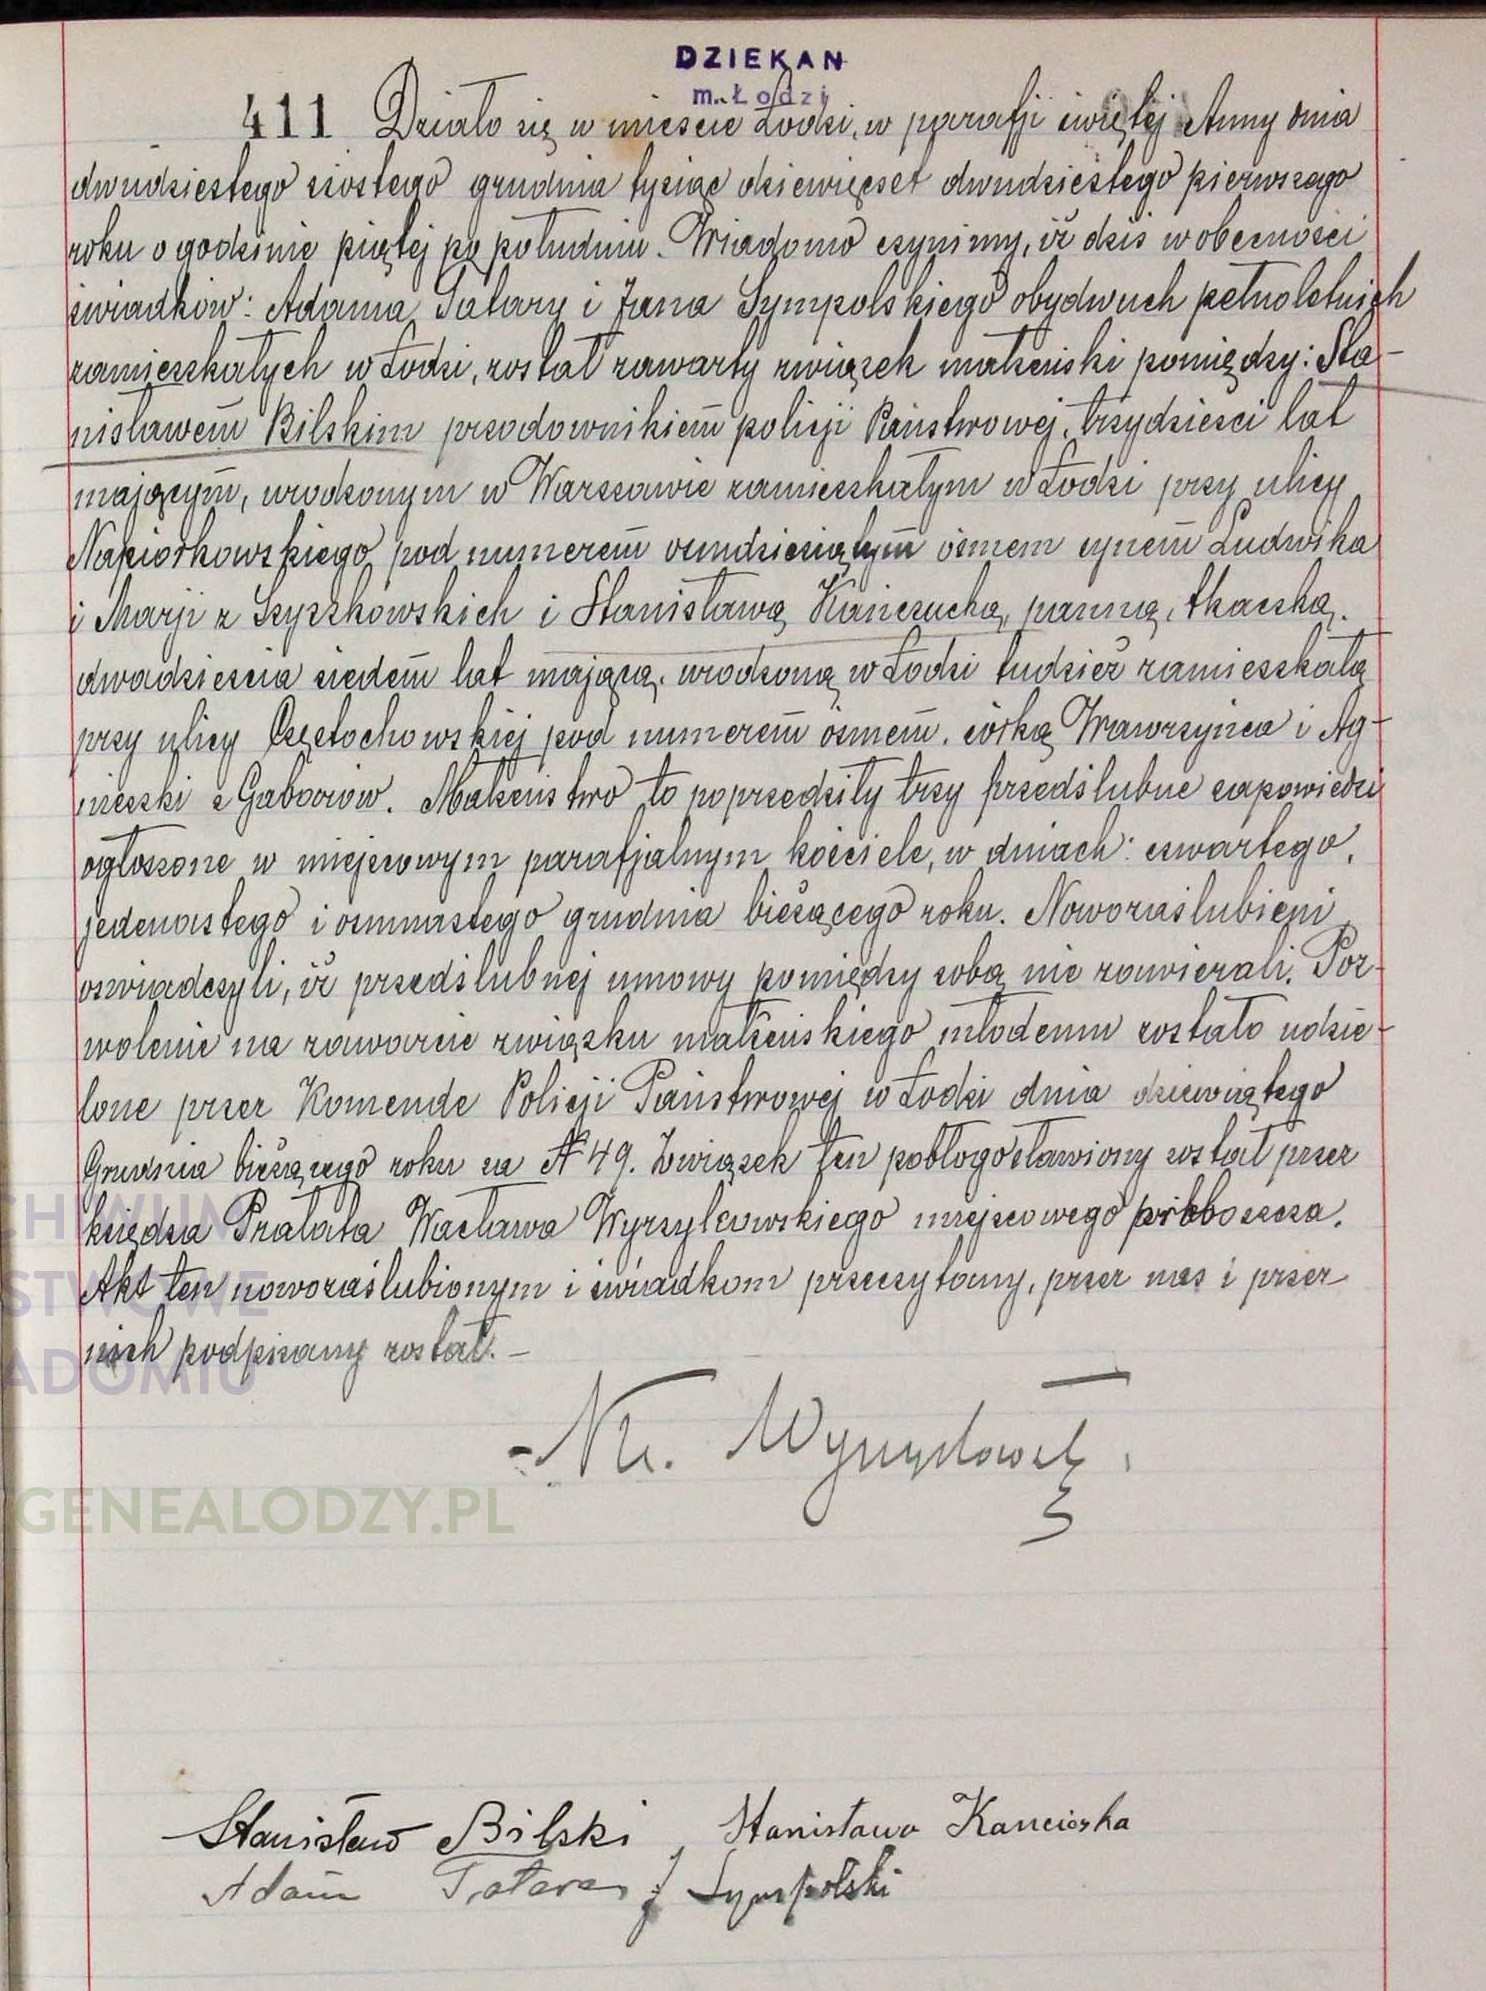 DZIEKAN
m. Łodzi
411 Działo się w mieście Łodzi, w parafji świętej Anny dnia
dwudziestego szóstego grudnia tysiąc dziewięćset dwudziestego pierwszego
roku o godzinie piątej po południu. Wiadomo czynimy, iż dziś w obecności
świadków: Adama Tatary i Jana Sympolskiego obydwuch pełnoletnich
zamieszkałych w Łodzi, został zawarty związek małżeński pomiędzy: Sta-
nisławem Bilskim przodownikiem policji Państwowej, trzydzieści lat
mającym, urodzonym w Warszawie zamieszkałym w Łodzi przy ulicy
Napiórkowskiego pod numerem osmdziesiątym ósmem synem Ludwika
i Marji z Szyszkowskich i Stanisławą Kańczucką, panną, tkaczką,
dwadzieścia siedem lat mającą, urodzoną w Łodzi tudzież zamieszkałą
przy ulicy Częstochowskiej pod numerem ósmem, córką Wawrzyńca i Ag-
nieszki z Gaborów. Małżeństwo to poprzedziły trzy przedślubne zapowiedzi
ogłoszone w miejscowym parafjalnym kościele, w dniach: czwartego,
jedenastego i osmnastego grudnia bieżącego roku. Nowozaślubieni
oświadczyli, iż przedślubnej umowy pomiędzy sobą nie zawierali. Poz-
wolenie na zawarcie związku małżeńskiego młodemu zostało udzie-
lone przez Komende Policji Państwowej w Łodzi dnia dziewiątego
Grudnia bieżącego roku za № 49. Związek ten pobłogosławiony został przez
księdza Prałata Wacława Wyrzykowskiego miejscowego proboszcza.
Akt ten nowozaślubionym i świadkom przeczytany, przez nas i przez
nich podpisany został. –
Stanisław Bilski, Stanisława Kanciocka
Adam Tatara J Sympolski
CHIWUM
STWOWE
ADOMIU
GENEALODZY.PL